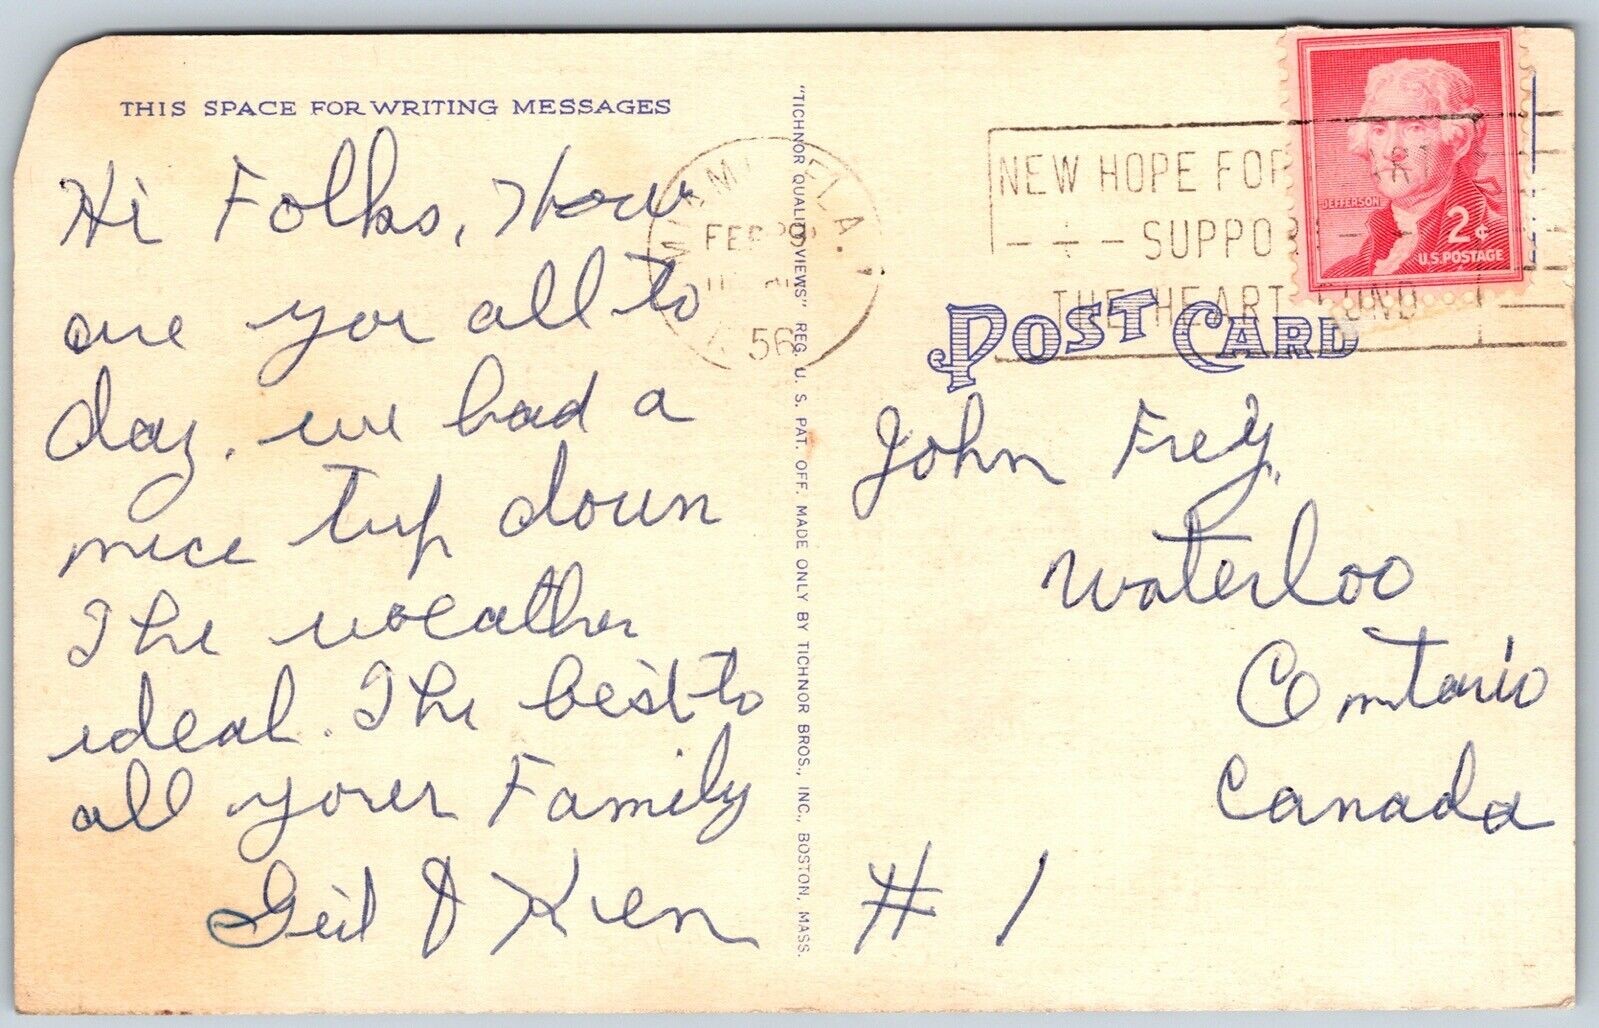 THIS SPACE FOR WRITING MESSAGES
Hi Folks, How
are you all to
day. we had a
nice trip down
The weather
ideal. The best to
all your Family
& Ken
"TICHNOR QUALITY VIEWS" REG. U. S. PAT. OFF. MADE ONLY BY TICHNOR BROS., INC., BOSTON, MASS.
MIAMI, FLA.
FEB
56
NEW HOPE FOR
SUPPORT
THE HEART FUND
JEFFERSON
2¢
U.S. POSTAGE
POST CARD
John Frey,
Waterloo
Ontario
Canada
# 1